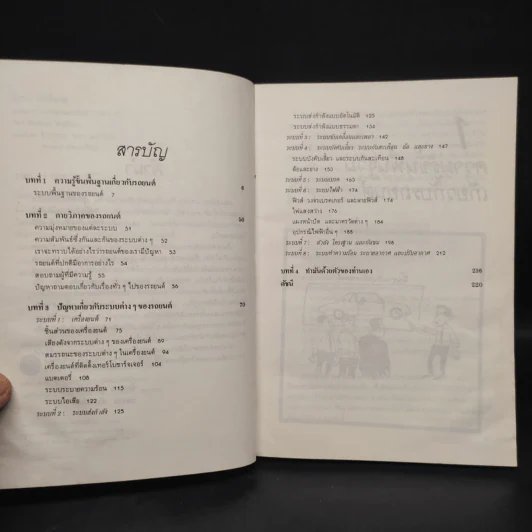 สารบัญ
บทที่ 1 ความรู้ขั้นพื้นฐานเกี่ยวกับรถยนต์
ระบบพื้นฐานของรถยนต์ 7
บทที่ 2 กายวิภาคของรถยนต์
ความมุ่งหมายของแต่ละระบบ 51
ความสัมพันธ์ซึ่งกันและกันของระบบต่าง ๆ 51
เราจะทราบได้อย่างไรว่ารถยนต์ของเรามีปัญหา 53
รถยนต์ที่ปกติมีอาการอย่างไร 54
สอบถามผู้ที่มีความรู้ 55
ปัญหาถามตอบเกี่ยวกับเรื่องทั่ว ๆ ไปของรถยนต์ 57
บทที่ 3 ปัญหาเกี่ยวกับระบบต่าง ๆ ของรถยนต์
ระบบที่ 1 : เครื่องยนต์ 71
ชิ้นส่วนของเครื่องยนต์ 75
เสียงดังจากระบบต่าง ๆ ของเครื่องยนต์ 89
สมรรถนะของระบบต่าง ๆ ในเครื่องยนต์ 94
เครื่องยนต์ที่ติดตั้งเทอร์โบชาร์จเจอร์ 104
แบตเตอรี่ 108
ระบบระบายความร้อน 113
ระบบไอเสีย 122
ระบบที่ 2 : ระบบส่งกำลัง 125
ระบบส่งกำลังแบบอัตโนมัติ 125
ระบบส่งกำลังแบบธรรมดา 134
ระบบที่ 3 : ระบบขับเคลื่อนและเพลา 142
ระบบบังคับเลี้ยว และระบบกันสะเทือน 148
ล้อและยาง
ระบบที่ 5 : ระบบเบรค 163
ระบบที่ 6 : ระบบไฟฟ้า
ฟิวส์ วงจรเบรคเกอร์ และสายฟิวส์
ไฟแสงสว่าง 176
แผงหน้าปัด และมาตรวัดต่าง ๆ 184
อุปกรณ์ไฟฟ้าอื่น ๆ 188
ระบบที่ 7 : ตัวถัง โครงฐาน และห้องรถ 198
บทที่ 4 ทำมันด้วยตัวของท่านเอง 206
ดัชนี 220